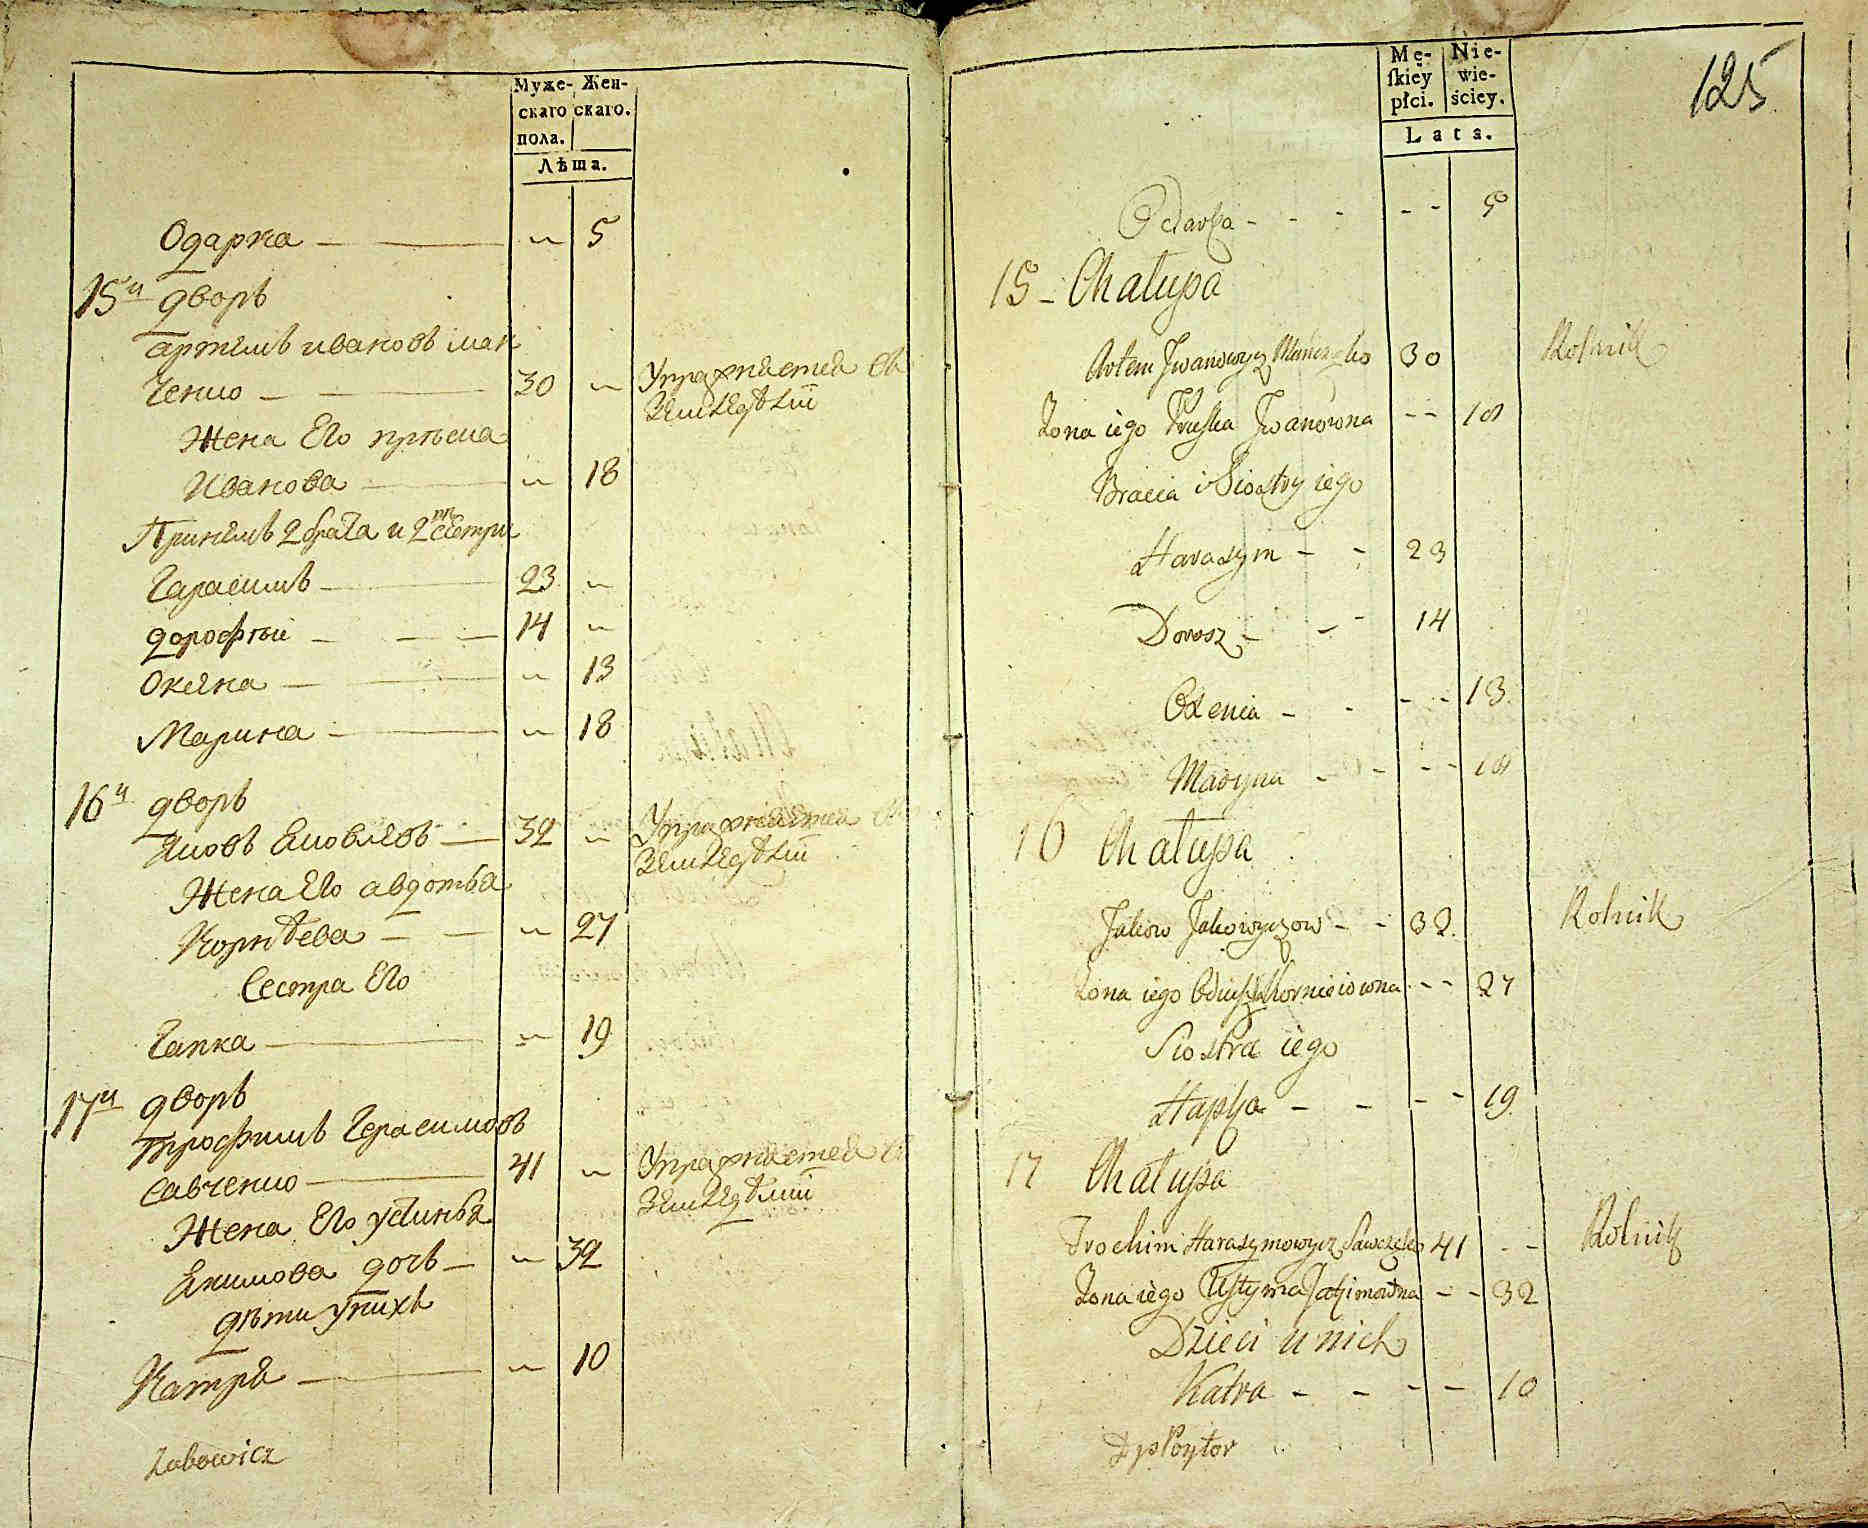 Муже- Жен-
скаго скаго.
пола.
Лѣта.
Одарка — „ 5
15й дворъ
артемъ ивановъ ман
ченко — 30 „ Упражняется въ
земледѣліи
Жена Его приська
Иванова — „ 18
При немъ 2 брата и 2 сестри
Гарасимъ — 23 „
дорофѣй — 14 „
Оксена — „ 13
Марина — „ 18
16й дворъ
Яковъ Яковлевъ — 32 „ Упражняется въ
земледѣліи
Жена Его авдотья
Корнѣева — „ 27
Сестра Его
Гапка — „ 19
17й дворъ
трофимъ Герасимовъ
савченко — 41 „ Упражняется въ
земледѣліи
Жена Его устинья
Екимова дочь — „ 32
дѣти у нихъ
Катря — „ 10
Zabowicz
125
Mę- Nie-
skiey wie-
płci. ściey.
Lata.
Odarka - - - - - 5
15 - Chałupa
Artem Iwanowycz Manczenko 30 Rolnik
Żona iego Pruska Iwanowna - - 18
Bracia i Siostry iego
Harasym - - 23
Dorosz - - - 14
Oxenia - - - - 13
Maryna - - - - 18
16 Chałupa
Jakow Jakowyczow - - 32 Rolnik
Żona iego Korneiowna - - 27
Siostra iego
Hapka - - - - 19
17 Chałupa
Trochim Harasymowycz Sawczenko 41 - - Rolnik
Żona iego Ustyma Jakimowna - - 32
Dzieci u nich
Katra - - - - 10
Dyspozytor